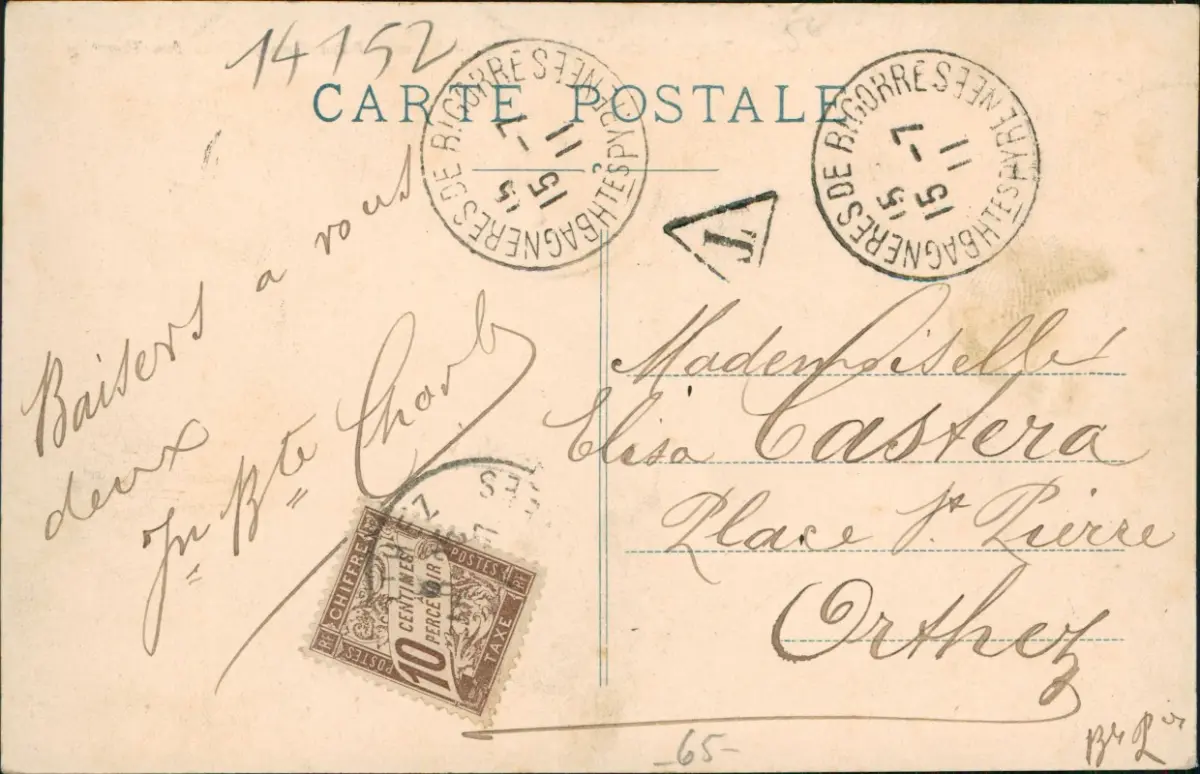 14152
CARTE POSTALE
BAGNERES DE BIGORRE HTES PYRENEES
15
15 -7
11
BAGNERES DE BIGORRE HTES PYRENEES
15
15 -7
11
T
Baisers a vous
deux
Jn Bte
Mademoiselle
Elisa Castera
Place St Pierre
Orthez
CHIFFRE
TAXE
POSTES
POSTES
RF
RF
10 CENTIMES
PERCEVOIR
-65-